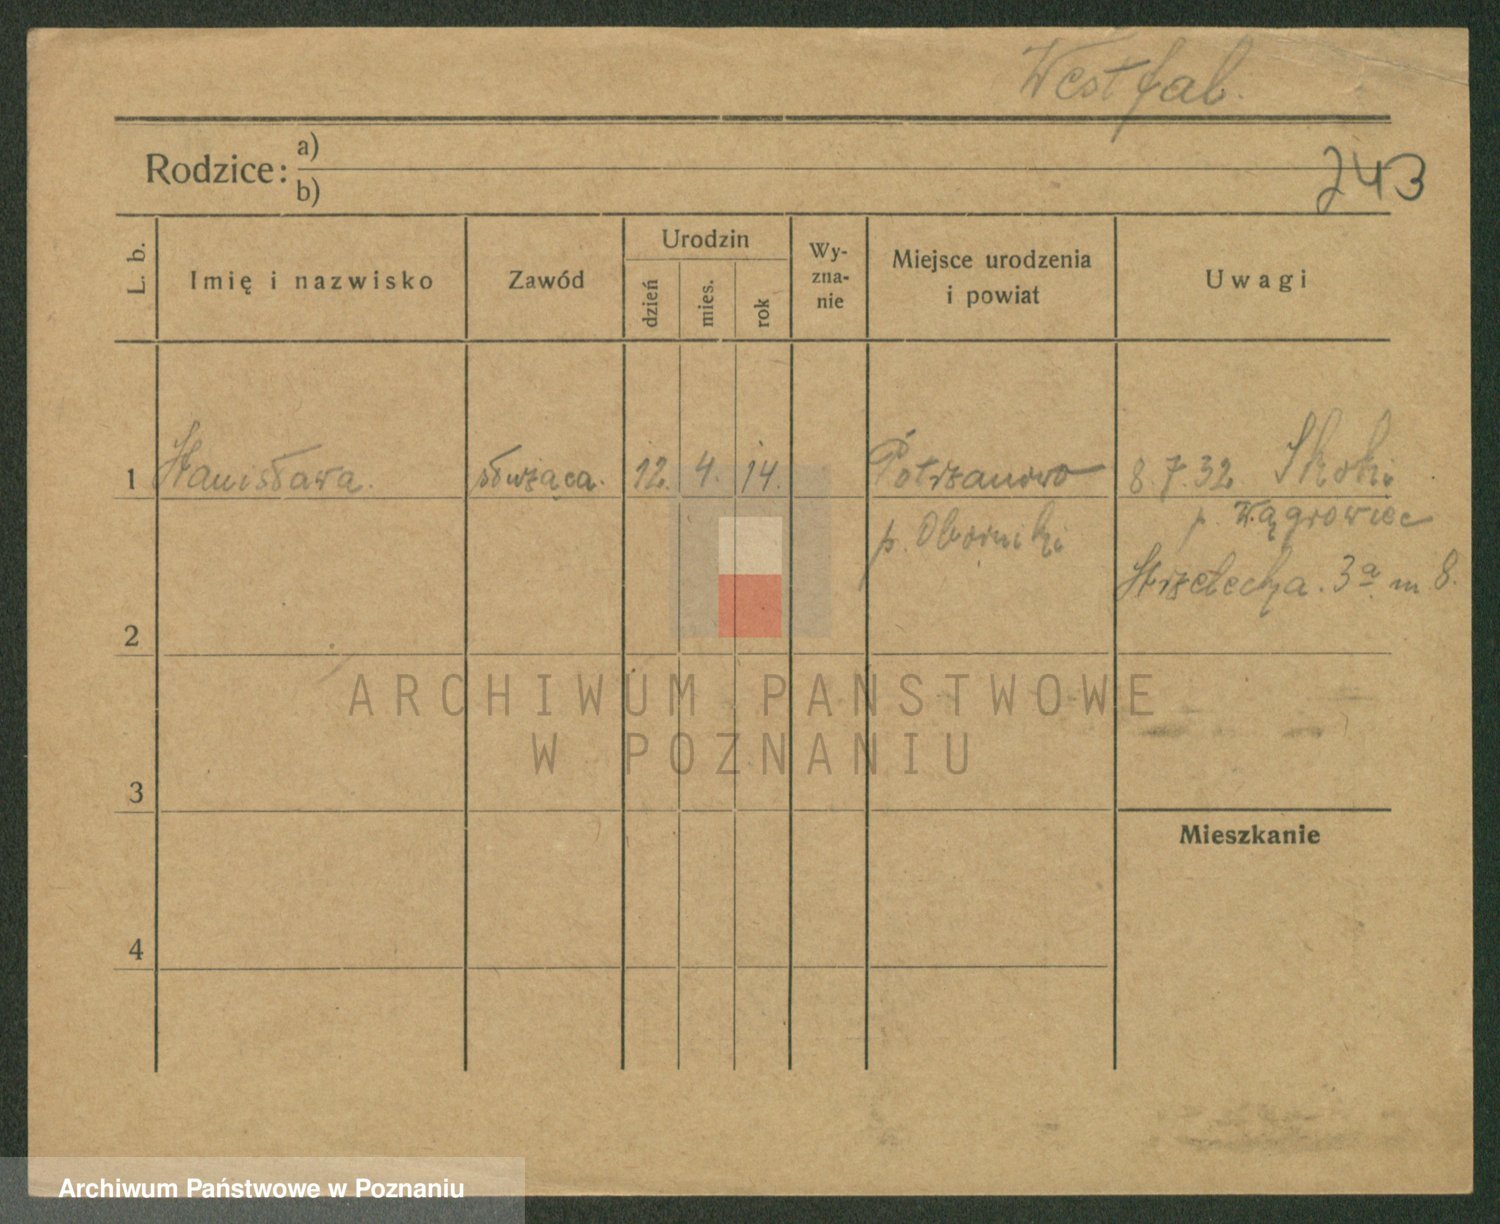 Westfal.
Rodzice: a)
b)
243
L. b.
Imię i nazwisko
Zawód
Urodzin
dzień
mies.
rok
Wy-
zna-
nie
Miejsce urodzenia
i powiat
Uwagi
1 Stanisława. służąca. 12. 4. 14. Potrzanowo 8.7.32 Skoki
p. Oborniki p. Wągrowiec
Strzelecka. 3a m 8.
2
ARCHIWUM PAŃSTWOWE
W POZNANIU
3
Mieszkanie
4
Archiwum Państwowe w Poznaniu